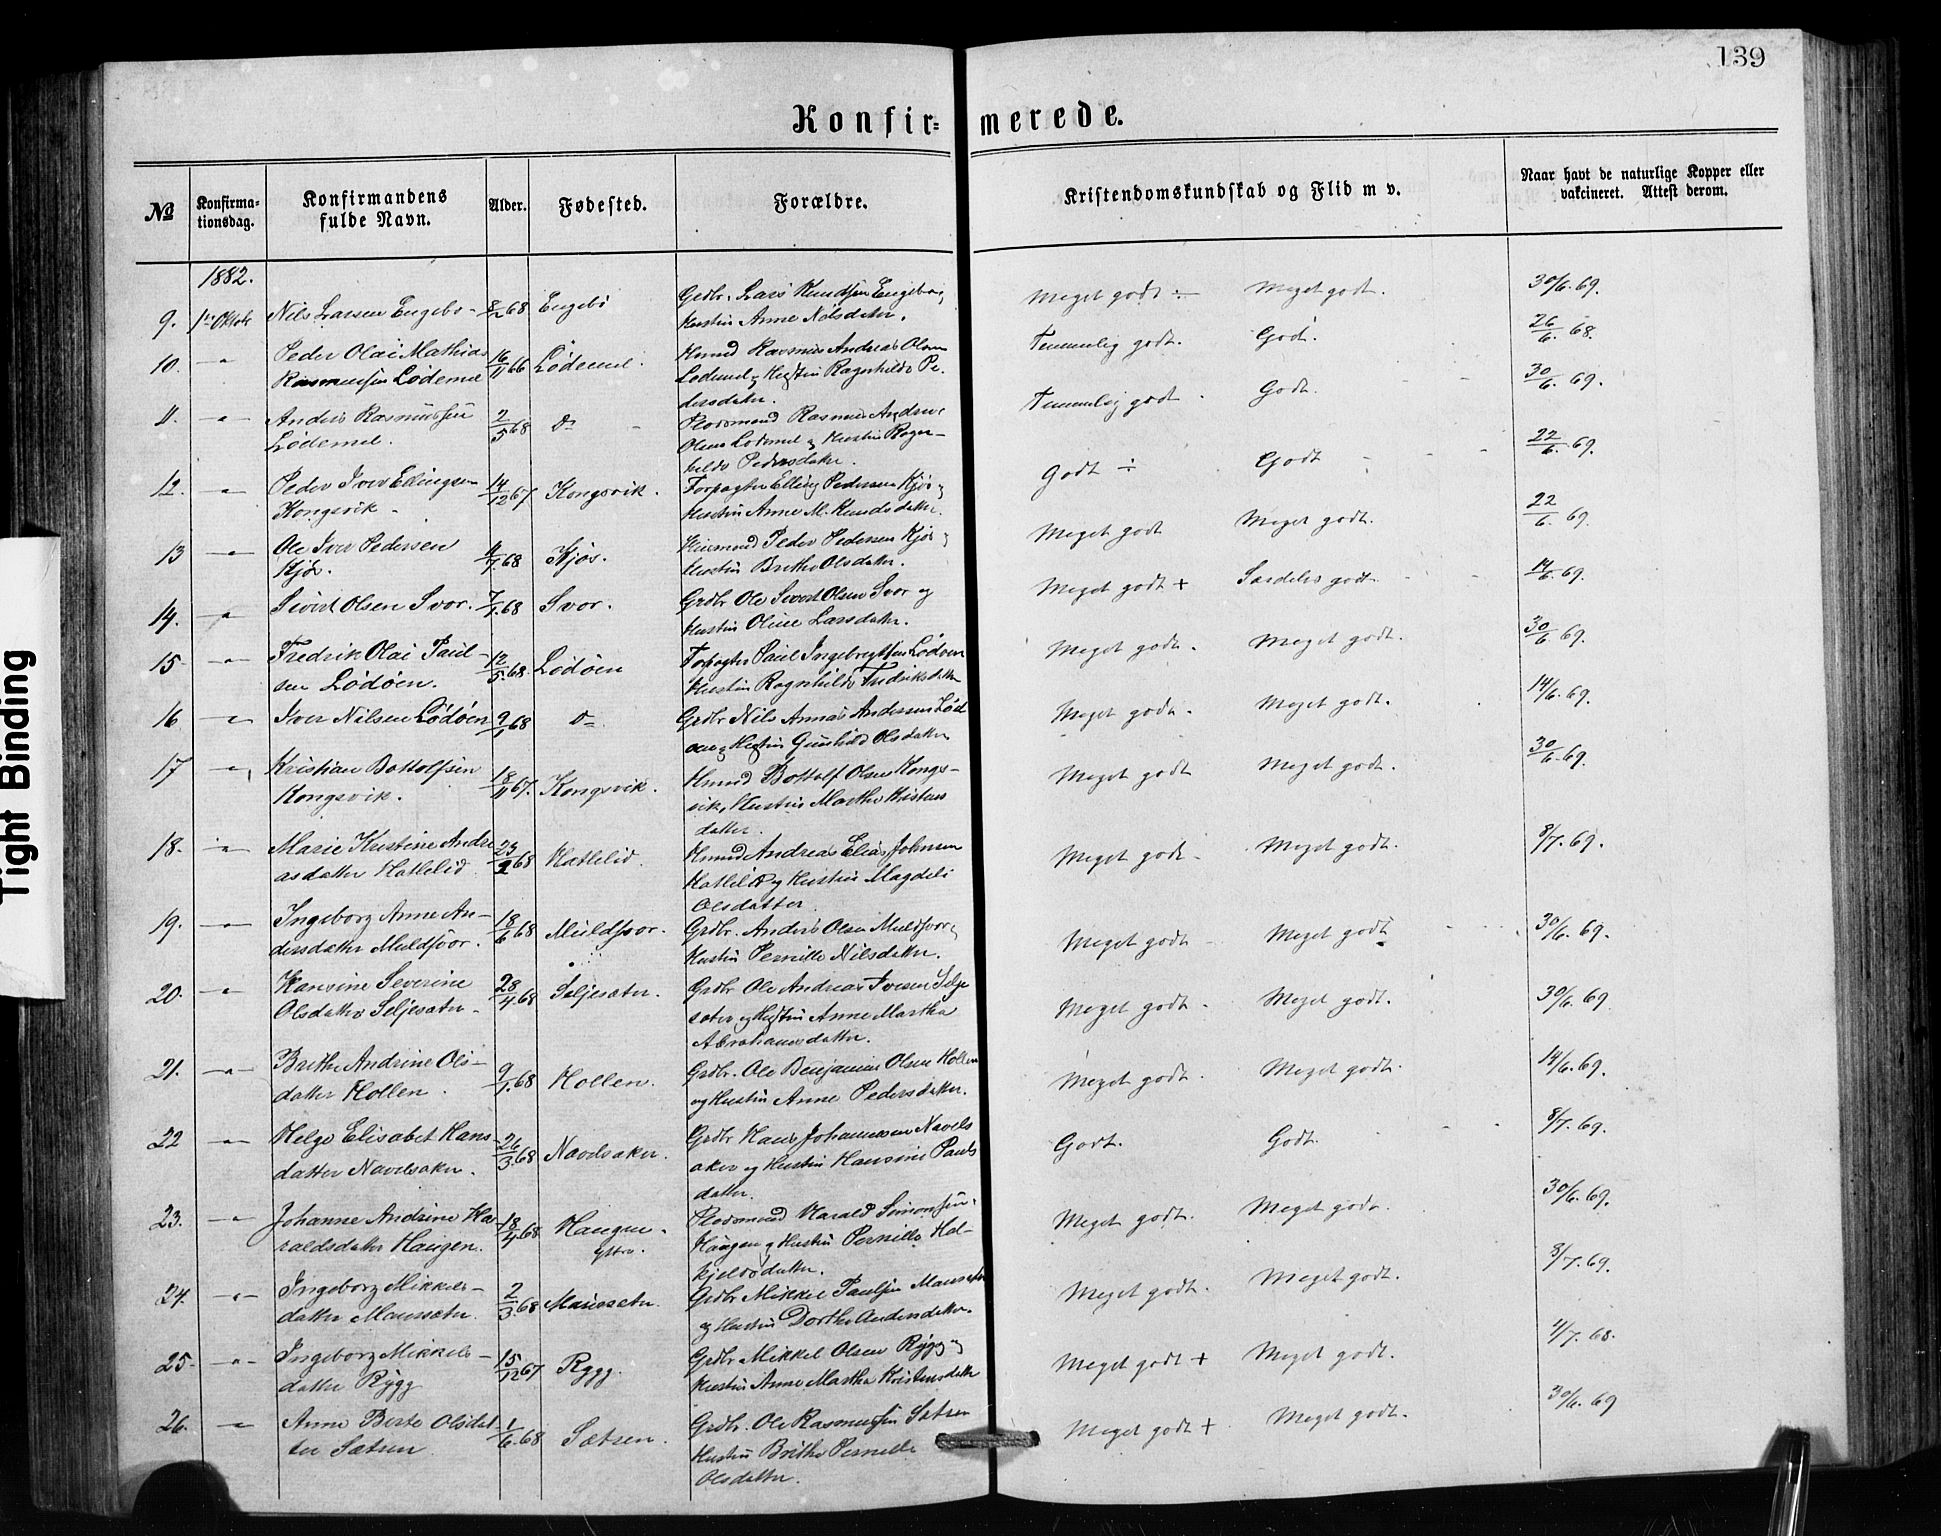 139
Konfir= merede.
№
Konfirma=
tionsdag.
Konfirmandens
fulde Navn.
Alder.
Fødested.
Forældre.
Kristendomskundskab og Flid m v.
Naar havt de naturlige Kopper eller
vakcineret. Attest derom.
1882.
9. 1ste Oktob Nils Larsen Engebø - 8/2 68 Engebø Grdbr. Lars Knudsen Engebø og Meget godt ÷ Meget godt. 30/6. 69.
Hustru Anne Nilsdatter.
10. -"- Peder Olai Mathias 16/11 66 Lødemel. Hmnd Rasmus Andreas Olsen Temmelig godt. Godt. 26/6. 68.
Rasmussen Lødemel Lødemel og Hustru Ragnhilde Pe-
dersdatter.
11. -"- Anders Rasmussen 2/5 68 do Plodsmand Rasmus Andreas Temmelig godt. Godt. 30/6. 69.
Lødemel. Olsen Lødemel og Hustru Ragn-
hilde Pedersdatter.
12. -"- Peder Iver Ellingsen 14/12 67 Kongsvik. Forpagter Elling Pedersen Kjøs og Godt ÷ Godt 22/6. 69.
Kongsvik - Hustru Anne M. Knudsdatter.
13 -"- Ole Iver Pedersen 4/7. 68 Kjøs. Huusmand Peder Pedersen Kjøs og Meget godt Meget godt. 22/6. 69.
Kjøs. Hustru Brithe Olsdatter.
14. -"- Sivert Olsen Svor. 7/1. 68 Svor. Grdbr Ole Sivert Olsen Svor og Meget godt + Særdeles godt 14/6. 69.
Hustru Oline Larsdatter.
15 -"- Fredrik Olai Paul- 12/5. 68. Lødøen Forpagter Paul Ingebrigtsen Lødøen Meget godt. Meget godt. 30/6. 69.
sen Lødøen. Hustru Ragnhilde Fredriksdatter
16 -"- Iver Nilsen Lødøen 9/1 68 do Grdbr Nils Annas Andersen Lød Meget godt. Meget godt. 14/6. 69.
øen og Hustru Gunhild Olsdatter
17 -"- Kristian Bottolfsen 18/11 67. Kongsvik. Hmnd Bottolf Olsen Kongs- Meget godt Meget godt. 30/6. 69.
Kongsvik. vik, Hustru Marthe Kristens
datter.
18. -"- Marie Kristine Andre 23/2 68 Hatlelid. Hmnd Andreas Elias Johnsen Meget godt. Meget godt. 8/7. 69.
asdatter Hatlelid Hatlelid og Hustru Magdeli
Olsdatter
19. -"- Ingeborg Anne An- 18/6 68 Muldsvor. Grdbr. Anders Olsen Muldsvor og Meget godt Meget godt 30/6. 69.
dersdatter Muldsvor. Hustru Pernille Nilsdatter.
20. -"- Hansine Severine 28/4. 68 Seljesæter. Grdbr Ole Andreas Iversen Selje Meget godt. Meget godt. 30/6. 69
Olsdatter Seljesæter - sæter og Hustru Anne Martha
Abrahamsdatter.
21. -"- Brithe Andrine Ols- 9/1. 68 Hollen. Grdbr. Ole Benjamin Olsen Hollen Meget godt. Meget godt. 14/6. 69.
datter Hollen. og Hustru Anne Pedersdatter.
22 -"- Helge Elisabet Hans- 26/3. 68 Navelsaker. Grdbr Hans Johannessen Navels Godt. Godt. 8/7. 69.
datter Navelsaker. aker og Hustru Hansine Pauls
datter.
23. -"- Johanne Andrine Ha- 18/4 68 Haugen Plodsmand Harald Simonsen Meget godt. Meget godt. 30/6. 69.
raldsdatter Haugen. ytre. Haugen og Hustru Pernille Hal-
kjelsdatter.
24. -"- Ingeborg Mikkels- 2/3. 68 Maursæter. Grdbr Mikkel Paulsen Maursæter Meget godt. Meget godt. 8/7. 69.
datter Maursæter. og Hustru Dorthe Andersdatter.
25. -"- Ingeborg Mikkels- 15/12 67 Rygg. Grdbr. Mikkel Olsen Rygg og Meget godt + Meget godt. 4/7. 68.
datter Rygg Hustru Anne Martha Kristensdatter
26. -"- Anne Berte Olsdat 1/6. 68 Sætren. Grdbr. Ole Rasmussen Sætren Meget godt + Meget godt. 30/6. 69
ter Sætren Hustru Brithe Pernille
Olsdatter.
Tight Binding